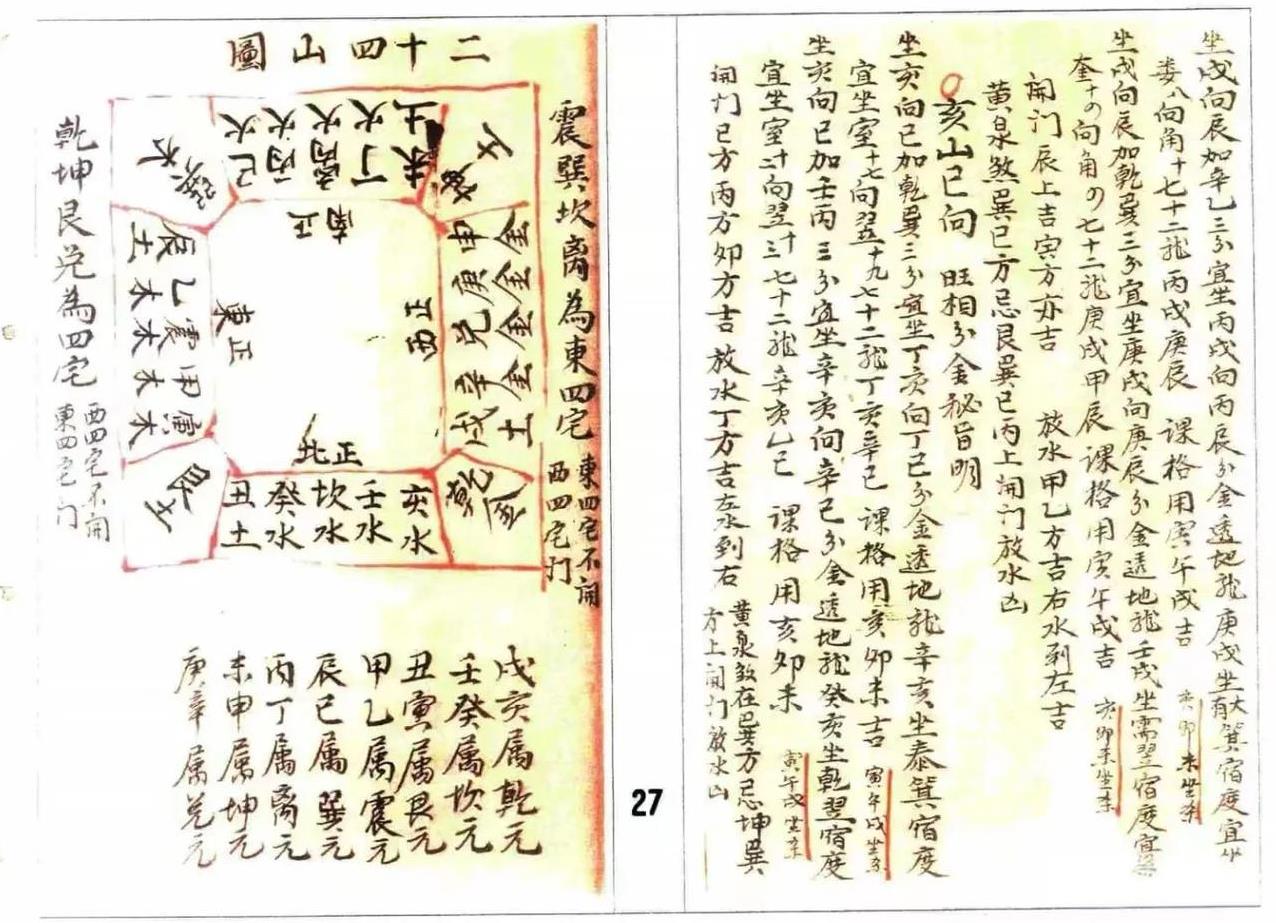 坐戌向辰加辛乙三分宜坐丙戌向丙辰分金透地龍庚戌坐大有箕宿度宜坐
婁八向角十七十二龍丙戌庚辰 課格用寅午戌吉 亥卯未坐杀
坐戌向辰加乾巽三分宜坐庚戌向庚辰分金透地龍壬戌坐需翌宿度宜
奎十の向角の七十二龍庚戌甲辰課格用寅午戌吉 亥卯未坐杀
開门辰上吉寅方亦吉 放水甲乙方吉右水到左吉
黄泉煞巽巳方忌艮巽巳丙上開门放水凶
亥山巳向 旺相分金秘旨明
坐亥向巳加乾巽三分宜坐丁亥向丁巳分金透地龍辛亥坐泰箕宿度
宜坐室十七向翌十九七十二龍丁亥辛巳 課格用亥卯未吉 寅午戌坐杀
坐亥向巳加壬丙三分宜坐辛亥向辛巳分金透地龍癸亥坐乾翌宿度
宜坐室三十向翌三十七十二龍辛亥乙巳 課格用亥卯未 寅午戌坐杀
開门巳方丙方卯方吉 放水丁方吉左水到右 黄泉煞在巽方忌坤巽
方上開门放水凶
27
二十四山圖
震巽坎离為東四宅 東四宅不開
西四宅门
乾坤艮兑為四宅 西四宅不開
東四宅门
巽木
巳火
丙火
离火
丁火
未土
坤土
申金
庚金
兑金
辛金
戌土
乾金
亥水
壬水
坎水
癸水
丑土
艮土
寅木
甲木
震木
乙木
辰土
正南
正西
正北
正東
戌亥属乾元
壬癸属坎元
丑寅属艮元
甲乙属震元
辰巳属巽元
丙丁属离元
未申属坤元
庚辛属兑元